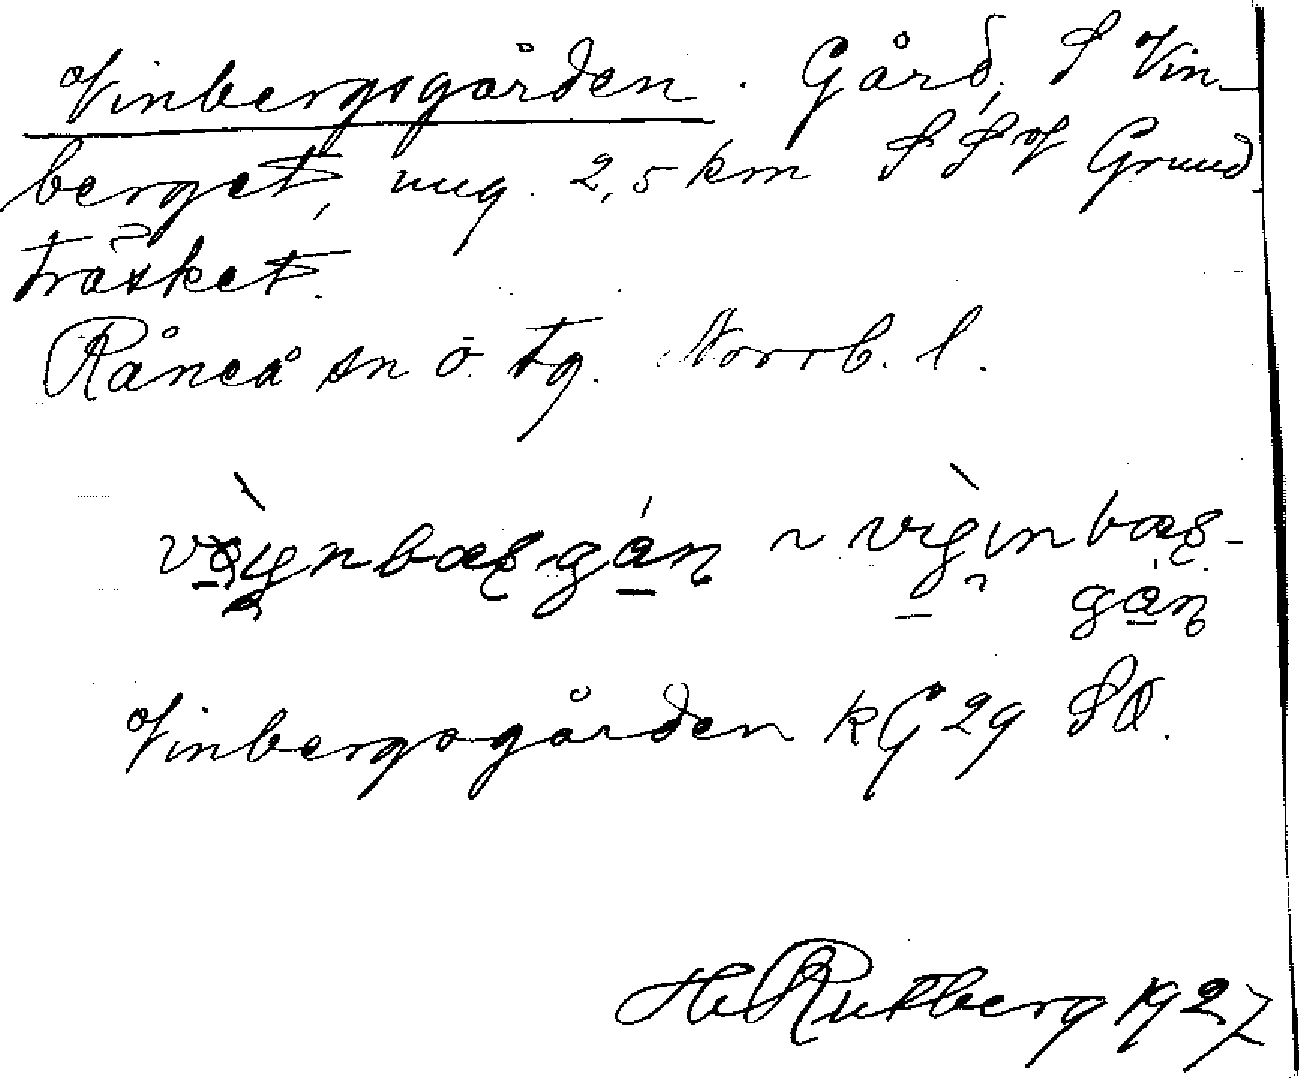 Vinbergsgården. Gård, S Vin-
berget, ung. 2,5 km SSV Grund-
träsket.
Råneå sn ö. tg. Norrb. l.
Vinbergsgården kG 29 SO.
H. Rutberg 1927